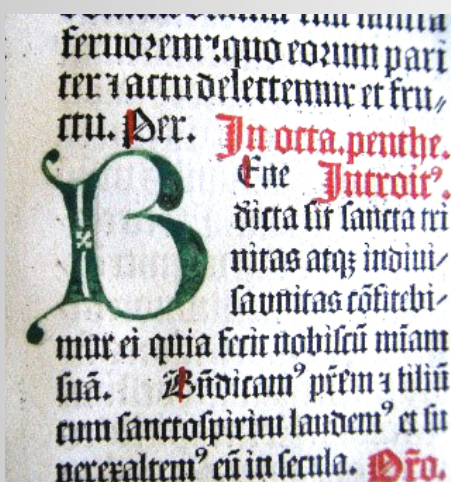 feruorem: quo eorum pari
ter ⁊ actu delectemur et fru⸗
ctu. Per. In octa. penthe.
Ene Introitꝰ.
B dicta sit sancta tri
nitas atqꝫ indiui⸗
sa vnitas cōfitebi⸗
mur ei quia fecit nobiscū mīam
suā. Bn̄dicamꝰ pr̄em ⁊ filiū
cum sanctospiritu laudemꝰ et su
perexaltemꝰ eū in secula. Or̄o.